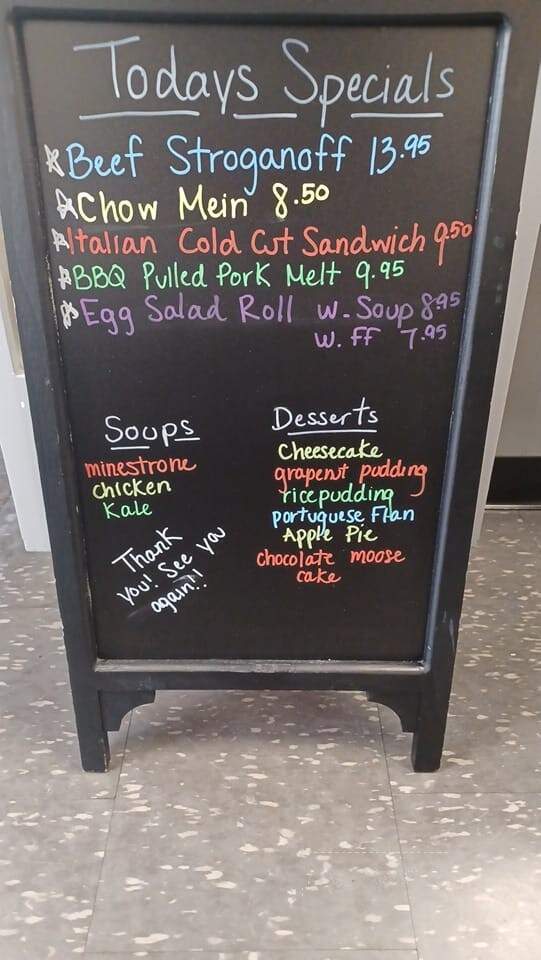 Todays Specials
Beef Stroganoff 13.95
Chow Mein 8.50
Italian Cold Cut Sandwich 9.50
BBQ Pulled Pork Melt 9.95
Egg Salad Roll w. Soup 8.95
w. FF 7.95
Soups
minestrone
chicken
Kale
Thank
you! See you
again!!
Desserts
Cheesecake
grapenut pudding
ricepudding
portuguese Flan
Apple Pie
chocolate moose
cake